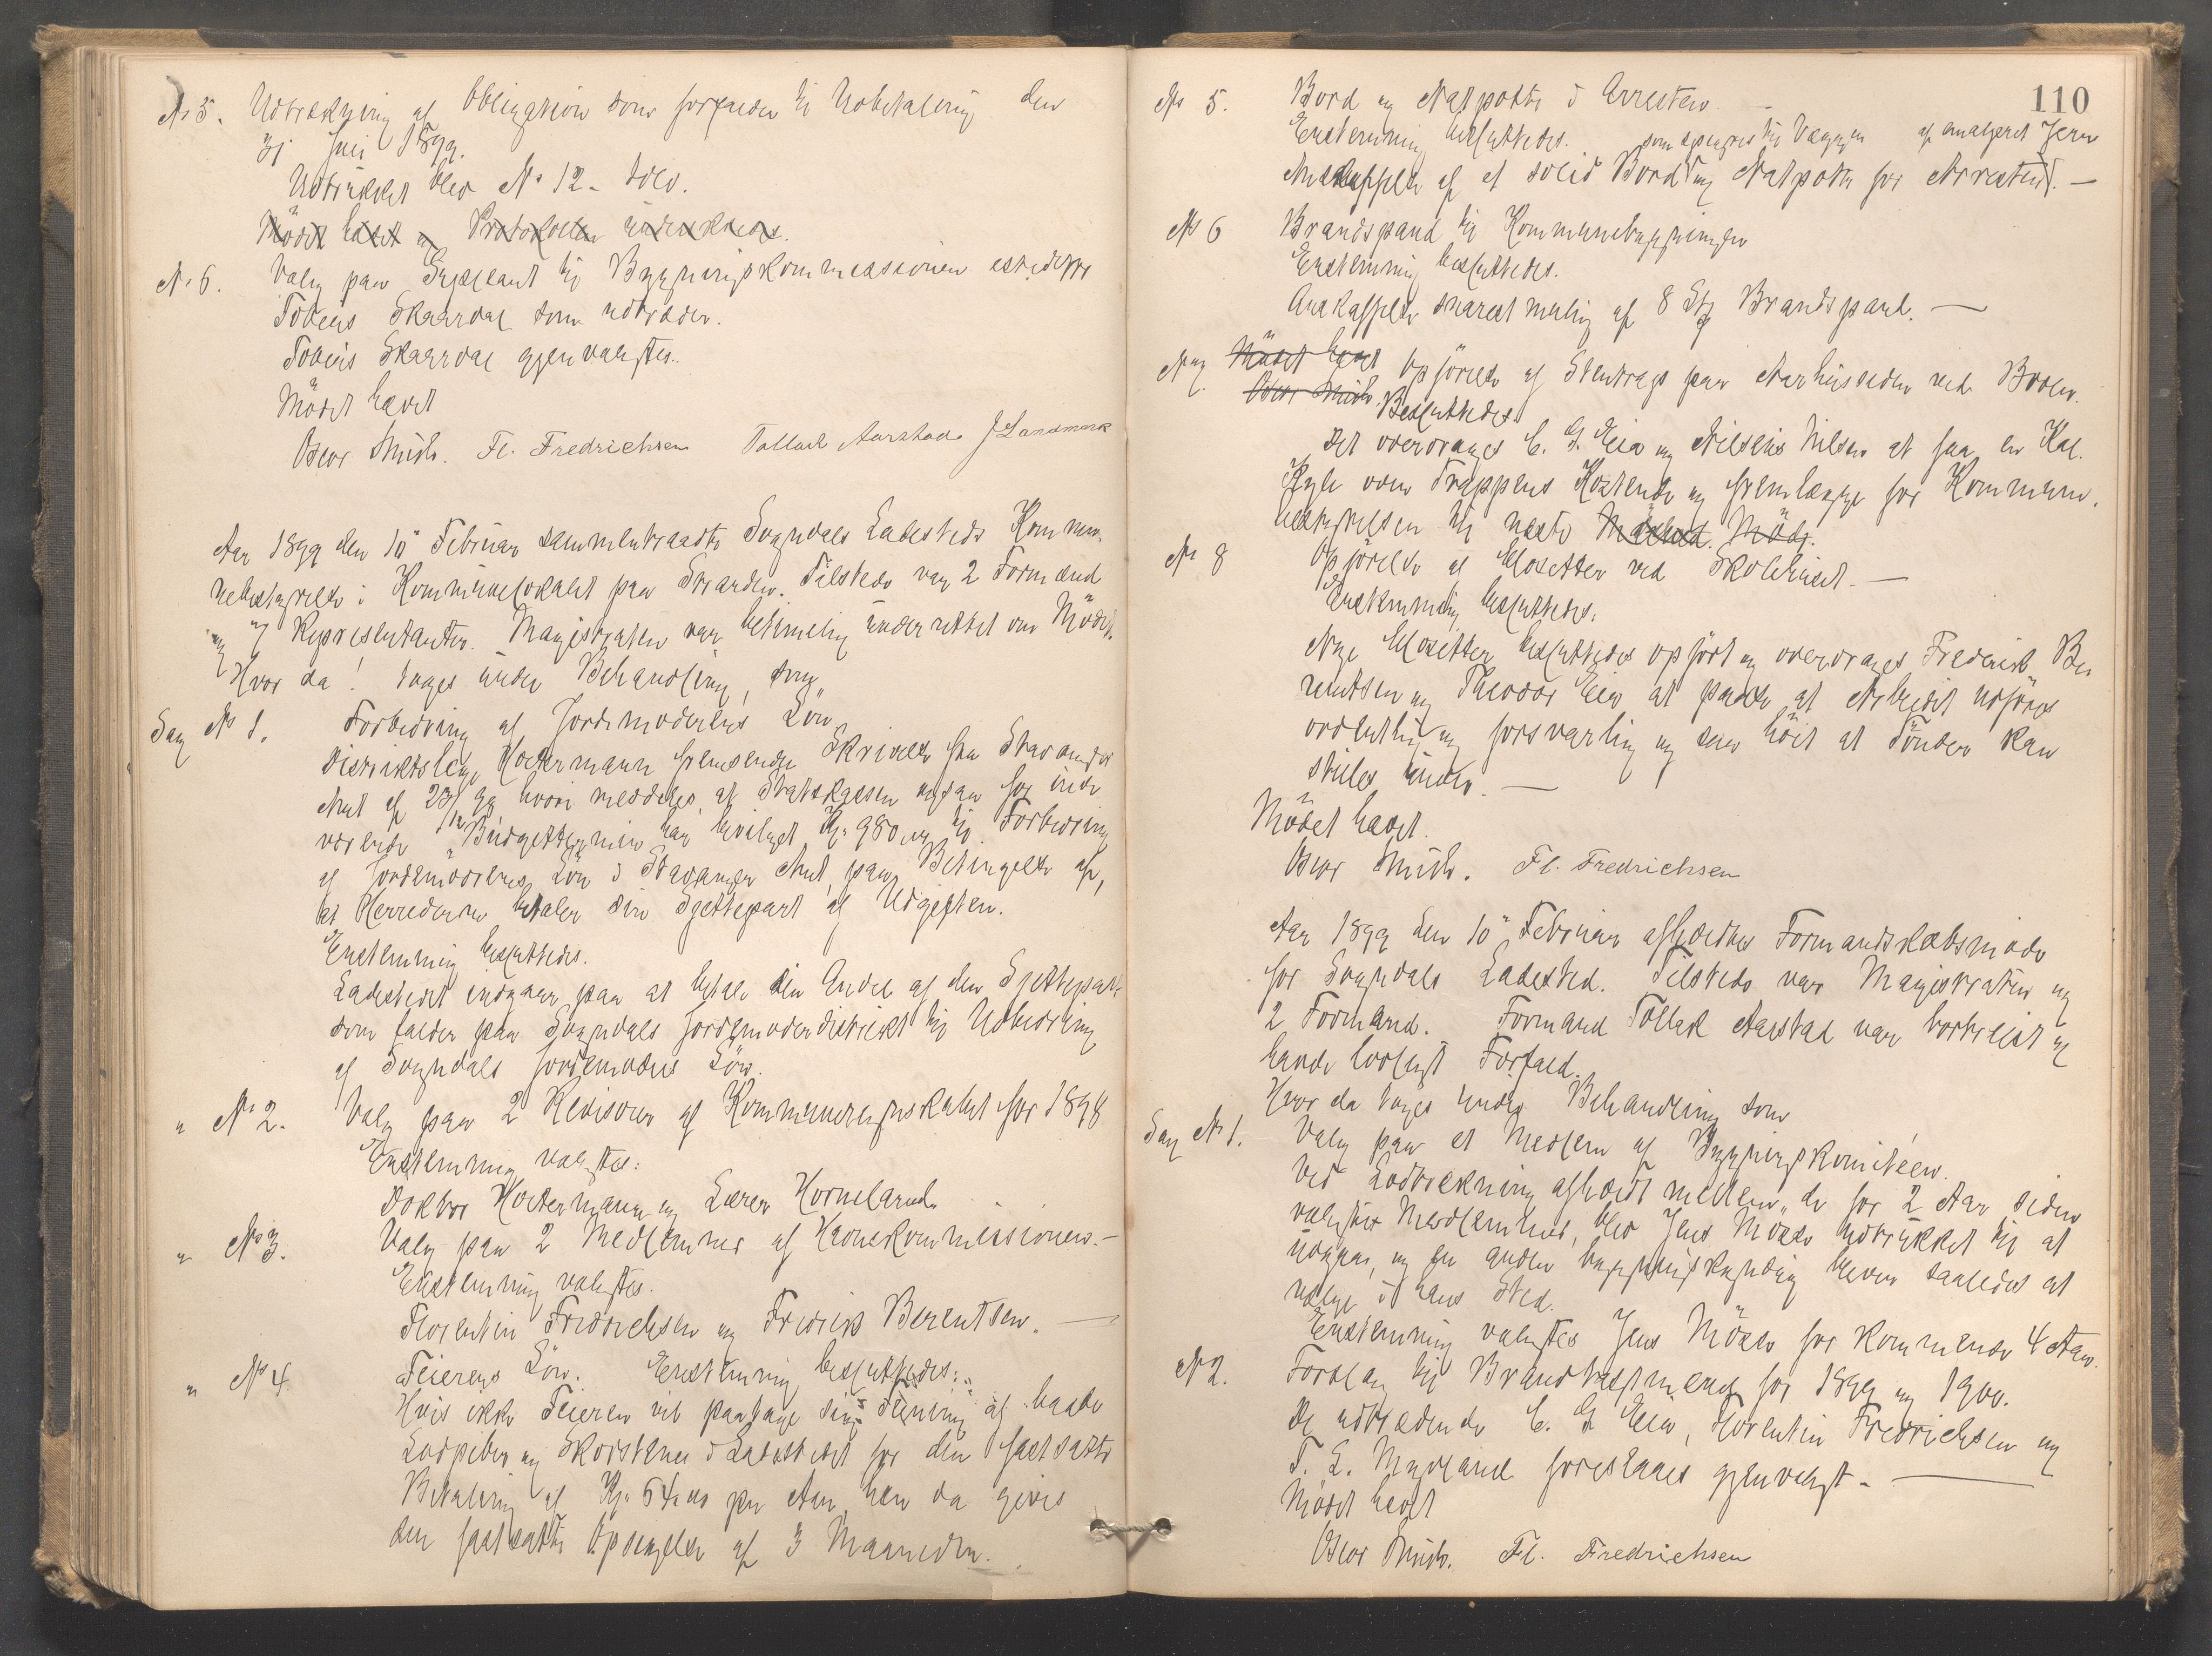 No 5. Udtrækning af Obligation som forfalder til Udbetaling den
31 Juli 1899.
Udtrukket blev No 12 - tolv.
Mödet hævet og Protokollen underskreves.
No 6. Valg paa Supleant til Bygningskommissionen istedetfor
Tobias Skaardal som udtræder.
Tobias Skaardal gjenvalgtes.
Mödet hævet
Fl. Fredrichsen Tollack Aarstad J Landmark
Aar 1899 den 10 Februar sammentraadte Sogndals Ladesteds Kommu-
nebestyrelse i Kommunelokalet paa Stranden. Tilstede var 2 Formænd
og 7 Repræsentanter. Magistraten var betimelig underrettet om Mödet.
Hvor da! toges under Behandling, som
Sag No 1. Forbedring af Jordemoderens Lön
Distriktslæge Hoctermann fremsendte Skrivelse fra Stavanger
Amt af 23/12 98 hvori meddeles, at Statskassen ogsaa for inde
værende Budgettermin har bevilget Kr. 980 til Forbedring
af Jordemödrenes Lön i Stavanger Amt, paa Betingelse af,
at Herrederne betaler sin Sjettepart af Udgiften.
Enstemmig besluttedes.
Ladestedet indgaar paa at betale sin Andel af den Sjettepart
som falder paa Sogndals Jordemoderdistrikt til Udbedring
af Sogndals Jordemoders Lön.
" No 2. Valg paa 2 Revisorer af Kommuneregnskabet for 1898
Enstemmig valgtes:
Doktor Hoctermann og Lærer Horneland.
" No 3. Valg paa 2 Medlemmer af Havnekommissionen. -
Enstemmig valgtes.
Florentin Fredrichsen og Fredrik Berentsen. -
" No 4. Feierens Lön. Enstemmig besluttedes:
Hvis ikke Feieren vil paatage sig Feining af baade
Lodpiber og Skorstene i Ladestedet for den fastsatte
Betaling af Kr. 64.00 pr Aar, han da gives
den fastsatte Opsigelse af 3 Maaneder.
110
No 5. Bord og Natpotte i Arresten. -
Enstemmig besluttedes. som spigres til Væggen af emaljeret Jern
Anskaffelse af et solid Bord og Natpotte for Arresten. -
No 6 Brandspand til Kommunebygningen
Enstemmig besluttedes.
Anskaffelse snarest mulig af 8 Stk Brandspand. -
No 7 Mödet hævet Opförelse af Stentrap paa Aarhussiden ved Broen.
Besluttedes
Det overdrages C. G. Eia og Nilsen at faa en Kal-
kyle over Trappens Kostende og fremlægge for Kommune-
bestyrelsen til neste Möde.
No 8 Opförelse af Klosetter ved Skolehuset. -
Enstemmig besluttedes.
Nye Klosetter besluttedes opfört og overdrages Fredrik Be-
rentsen og Theodor Eia at paase at Arbeidet udföres
ordentlig og forsvarlig og saa höit at Tönder kan
stilles under. -
Mödet hævet.
Fl. Fredrichsen
Aar 1899 den 10 Februar afholdtes Formandskabsmöde
for Sogndals Ladested. Tilstede var Magistraten og
2 Formænd. Formand Tollak Aarstad var bortreist og
havde lovligt Forfald.
Hvor da toges under Behandling som
Sag No 1. Valg paa et Medlem af Bygningskomiteen.
Ved Lodtrækning afholdt mellem de for 2 Aar siden
valgte Medlemmer, blev Jens Möse udtrukket til at
udgaa, og en anden bygningskyndig bliver saaledes at
vælge i hans Sted.
Enstemmig valgtes Jens Möse for kommende 4 Aar.
No 2. Forslag til Brandtaxtmænd for 1899 og 1900.
De udtrædende C. G. Eia, Florentin Fredrichsen og
T. L. Mydland foreslaaes gjenvalgt. -
Mödet hævet
Fl. Fredrichsen